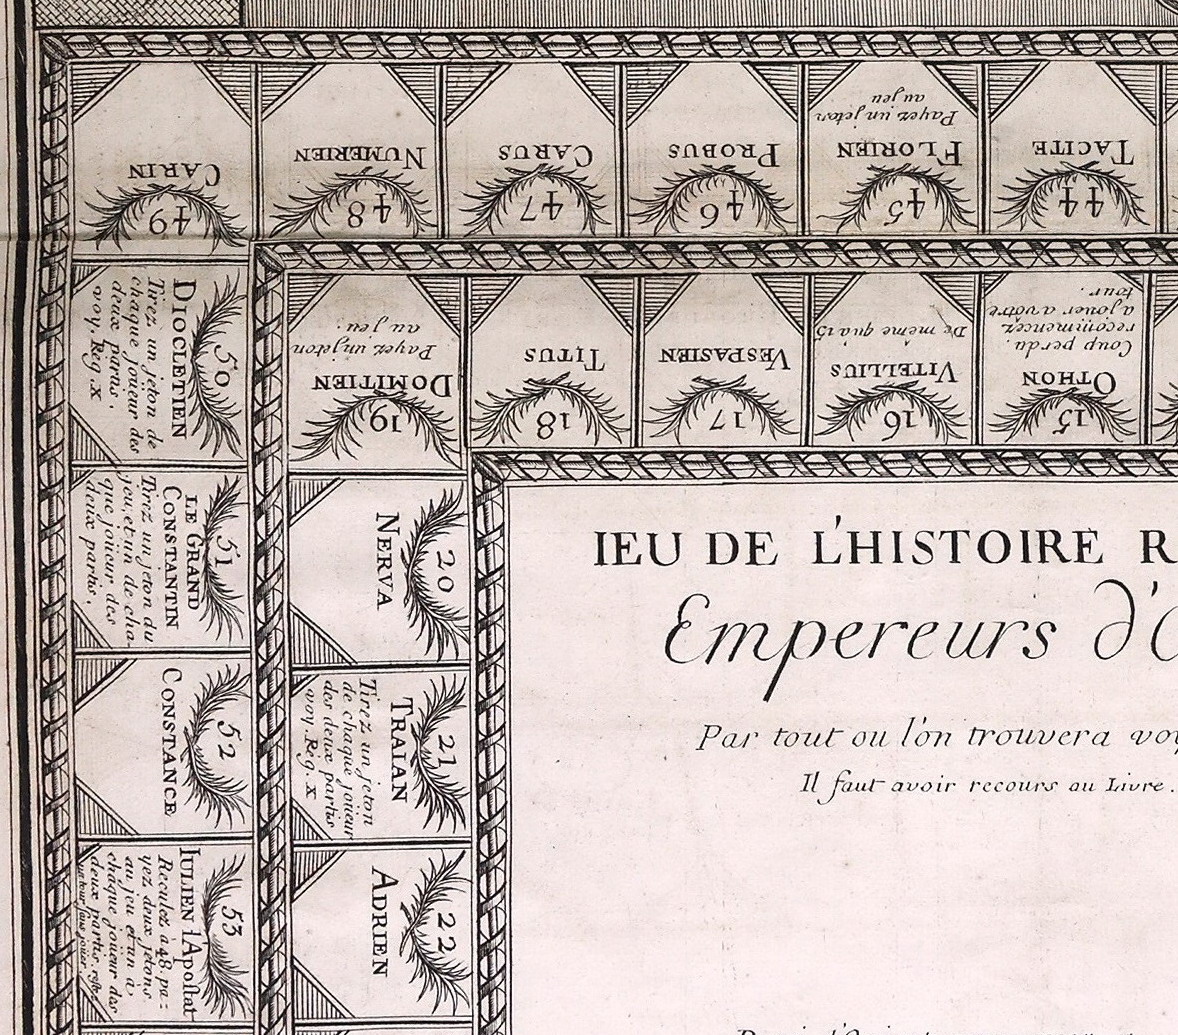 IEU DE L'HISTOIRE R
Empereurs d'O
Par tout ou l'on trouvera voy
Il faut avoir recours au Livre.
15
OTHON
Coup perdu.
recommencez
a jouer a votre
tour.
16
VITELLIUS
De même qu'à 15
17
VESPASIEN
18
TITUS
19
DOMITIEN
Payez un jeton
au jeu.
20
NERVA
21
TRAIAN
Tirez un jeton
de chaque joüeur
des deux partis
voy. Reg. X
22
ADRIEN
44
TACITE
45
FLORIEN
Payez un jeton
au jeu
46
PROBUS
47
CARUS
48
NUMERIEN
49
CARIN
50
DIOCLETIEN
Tirez un jeton de
chaque joueur des
deux partis.
voy. Reg. X
51
LE GRAND
CONSTANTIN
Tirez un jeton du
jeu, et un de cha-
que joüeur des
deux partis.
52
CONSTANCE
53
IULIEN l'Apostat
Reculez à 48 pa-
yez deux jetons
au jeu et un à
chaque joueur des
deux partis
un tour sans jouer